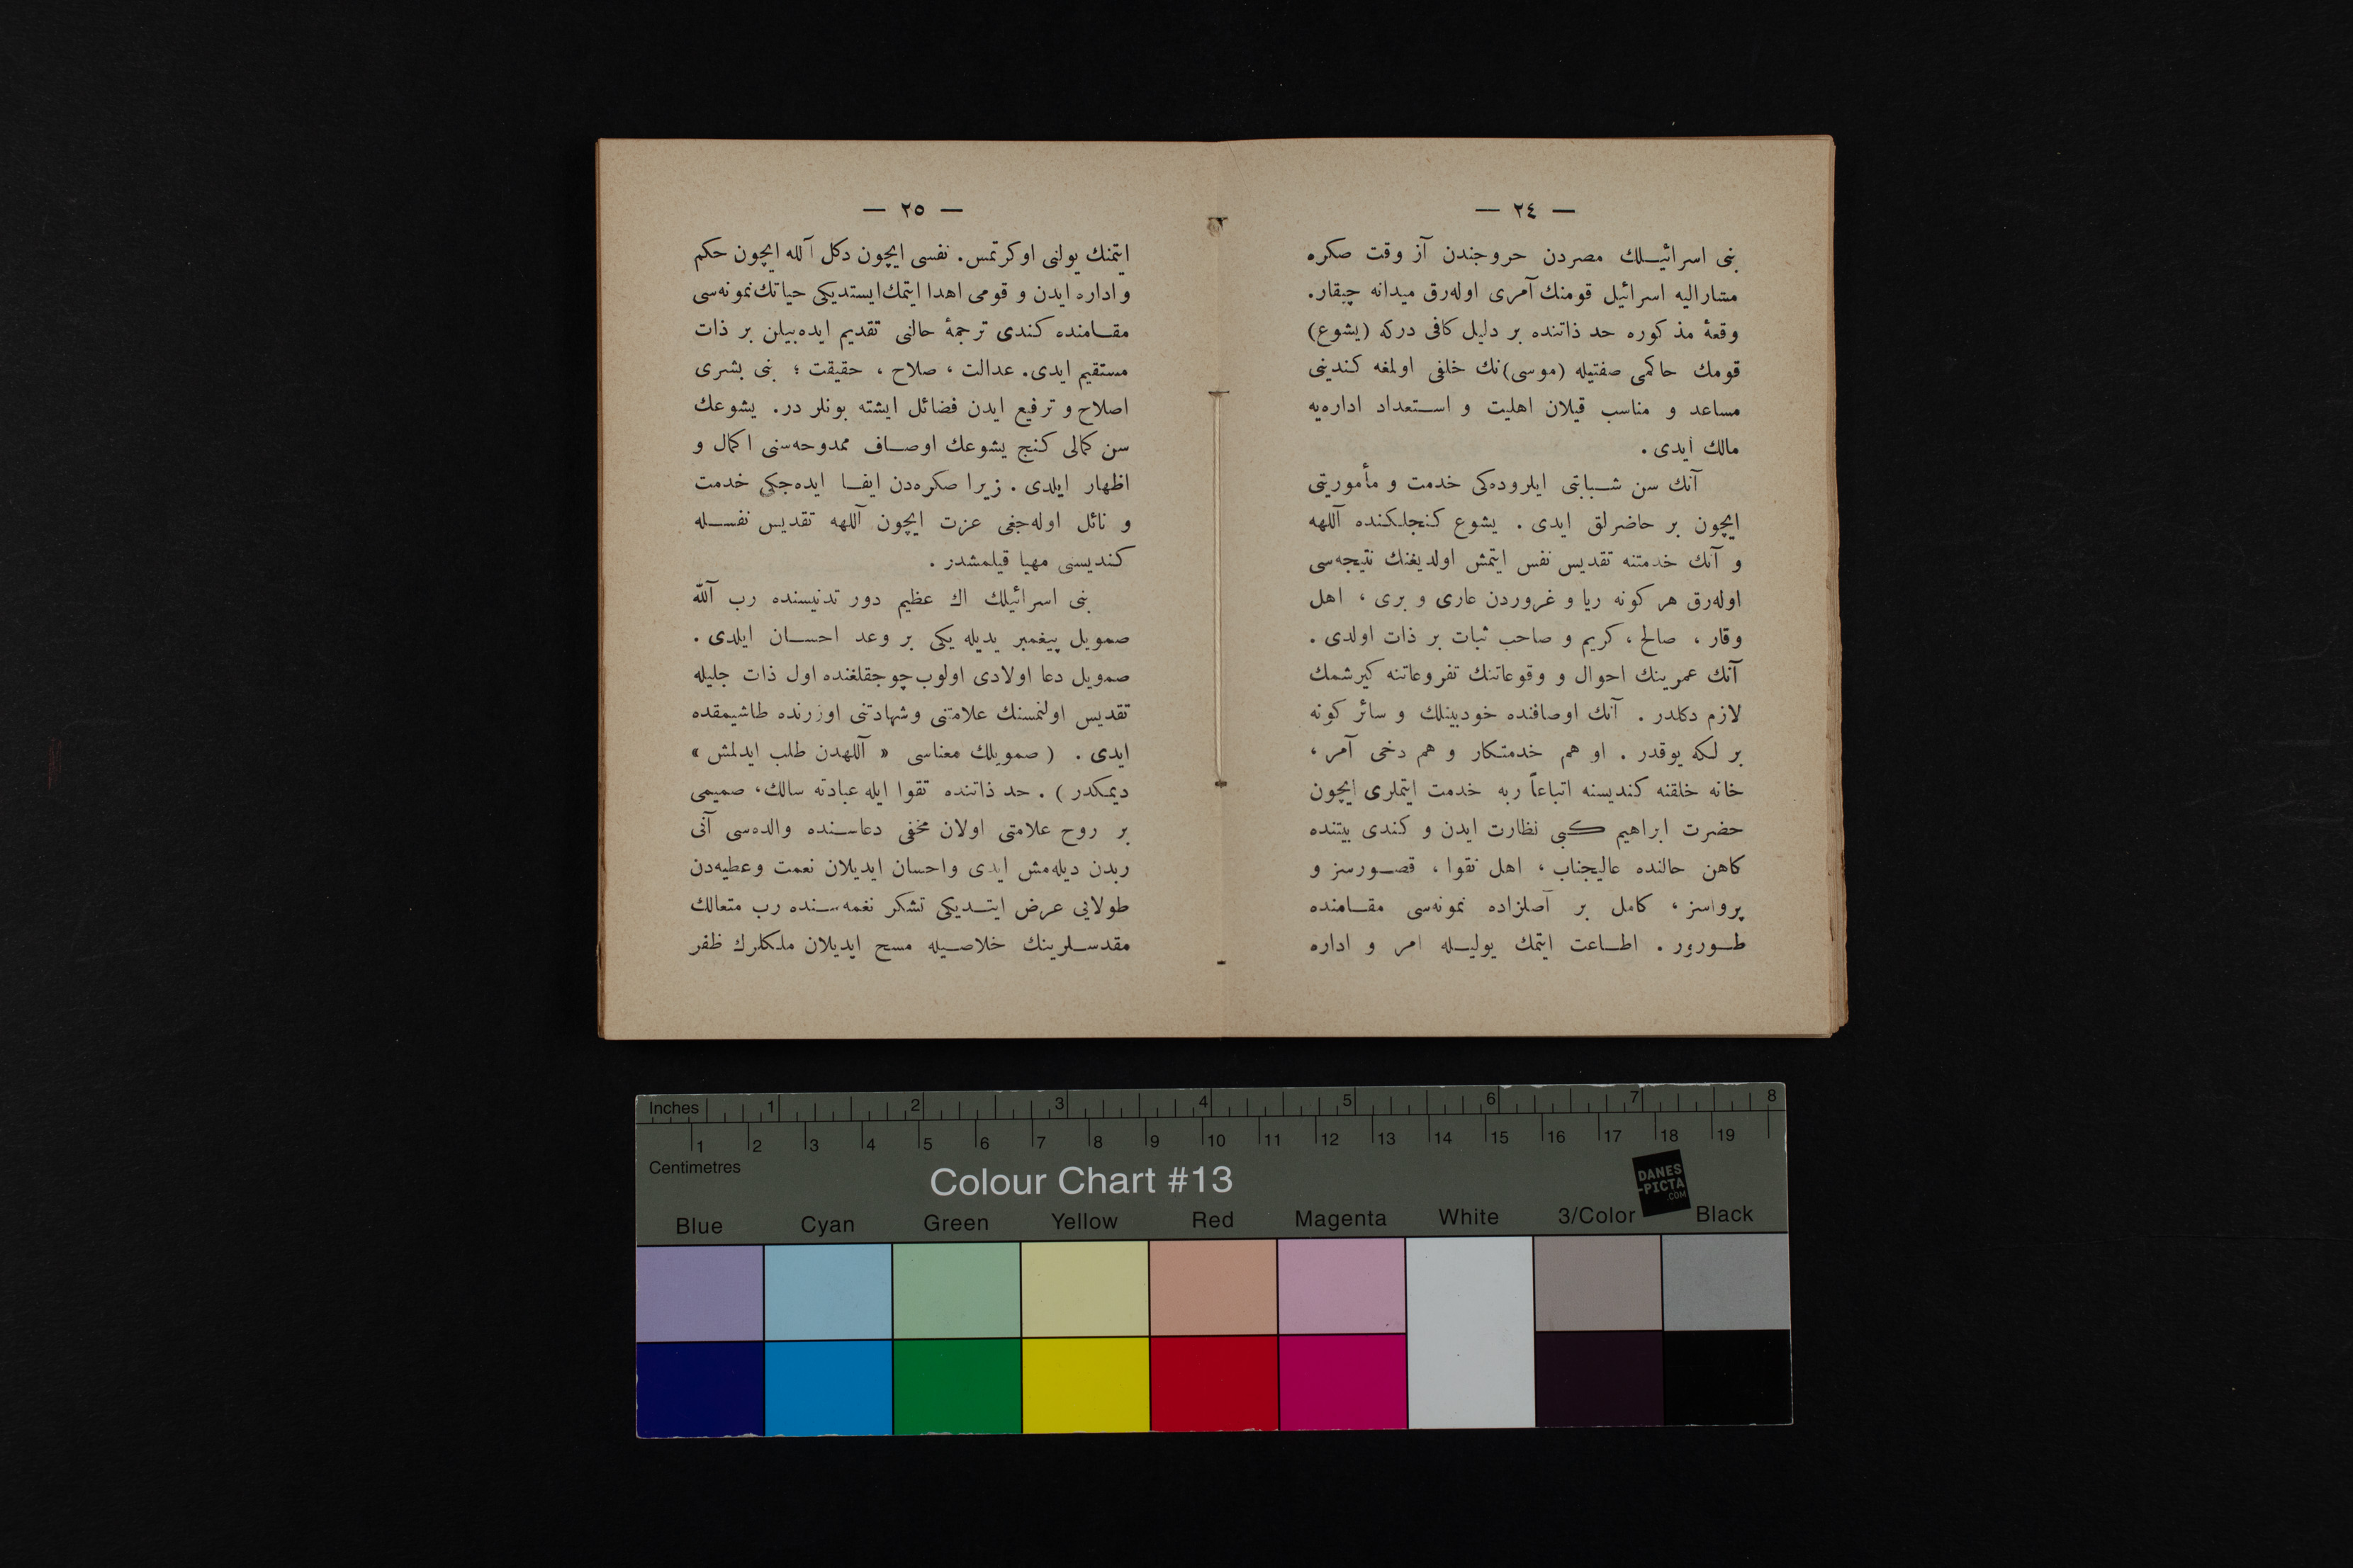 — ٢٤ —
بنی اسرائیلك مصردن خروجندن آز وقت صكره
مشارالیه اسرائیل قومنك آمری اوله‌رق میدانه چیقار.
وقعۀ مذكوره حد ذاتنده بر دلیل كافی دركه (یشوع)
قومك حاكمی صفتیله (موسی)نك خلفی اولمغه كندینی
مساعد و مناسب قیلان اهلیت و استعداد اداره‌یه
مالك ایدی .
آنك سن شبابتی ایلروده‌كی خدمت و مأموریتی
ایچون بر حاضرلق ایدی . یشوع كنجلكنده آللهه
و آنك خدمتنه تقدیس نفس ایتمش اولدیغنك نتیجه‌سی
اوله‌رق هر كونه ریا و غروردن عاری و بری ، اهل
وقار ، صالح ، كریم و صاحب ثبات بر ذات اولدی .
آنك عمرینك احوال و وقوعاتنك تفروعاتنه كیرشمك
لازم دكلدر . آنك اوصافنده خودبینلك و سائر كونه
بر لكه یوقدر . او هم خدمتكار و هم دخی آمر ،
خانه خلقنه كندیسنه اتباعاً ربه خدمت ایتملری ایچون
حضرت ابراهیم كبی نظارت ایدن و كندی بیتنده
كاهن حالنده عالیجناب ، اهل تقوا ، قصورسز و
پرواسز ، كامل بر آصلزاده نمونه‌سی مقامنده
طورور . اطاعت ایتمك یولیله امر و اداره
— ٢٥ —
ایتمنك یولنی اوكرتمس. نفسی ایچون دكل آلله ایچون حكم
و اداره ایدن و قومی اهدا ایتمك ایستدیكی حیاتك نمونه‌سی
مقامنده كندی ترجمۀ حالنی تقدیم ایده‌بیلن بر ذات
مستقیم ایدی. عدالت ، صلاح ، حقیقت ؛ بنی بشری
اصلاح و ترفیع ایدن فضائل ایشته بونلر در. یشوعك
سن كمالی كنج یشوعك اوصاف ممدوحه‌سنی اكمال و
اظهار ایلدی . زیرا صكره‌دن ایفا ایده‌جكی خدمت
و نائل اوله‌جغی عزت ایچون آللهه تقدیس نفسله
كندیسنی مهیا قیلمشدر .
بنی اسرائیلك اك عظیم دور تدنیسنده رب آلله
صمویل پیغمبر یدیله یكی بر وعد احسان ایلدی .
صمویل دعا اولادی اولوب چوجقلغنده اول ذات جلیله
تقدیس اولنمسنك علامتنی و شهادتنی اوزرنده طاشیمقده
ایدی . ( صمویلك معناسی « آللهدن طلب ایدلمش »
دیمكدر ) . حد ذاتنده تقوا ایله عبادته سالك، صمیمی
بر روح علامتی اولان مخفی دعاسنده والده‌سی آنی
ربدن دیله‌مش ایدی و احسان ایدیلان نعمت و عطیه‌دن
طولایی عرض ایتدیكی تشكر نغمه‌سنده رب متعالك
مقدسلرینك خلاصیله مسح ایدیلان ملكلرك ظفر
Inches 1 2 3 4 5 6 7 8
1 2 3 4 5 6 7 8 9 10 11 12 13 14 15 16 17 18 19
Centimetres
Colour Chart #13
DANES
-PICTA
.COM
Blue Cyan Green Yellow Red Magenta White 3/Color Black